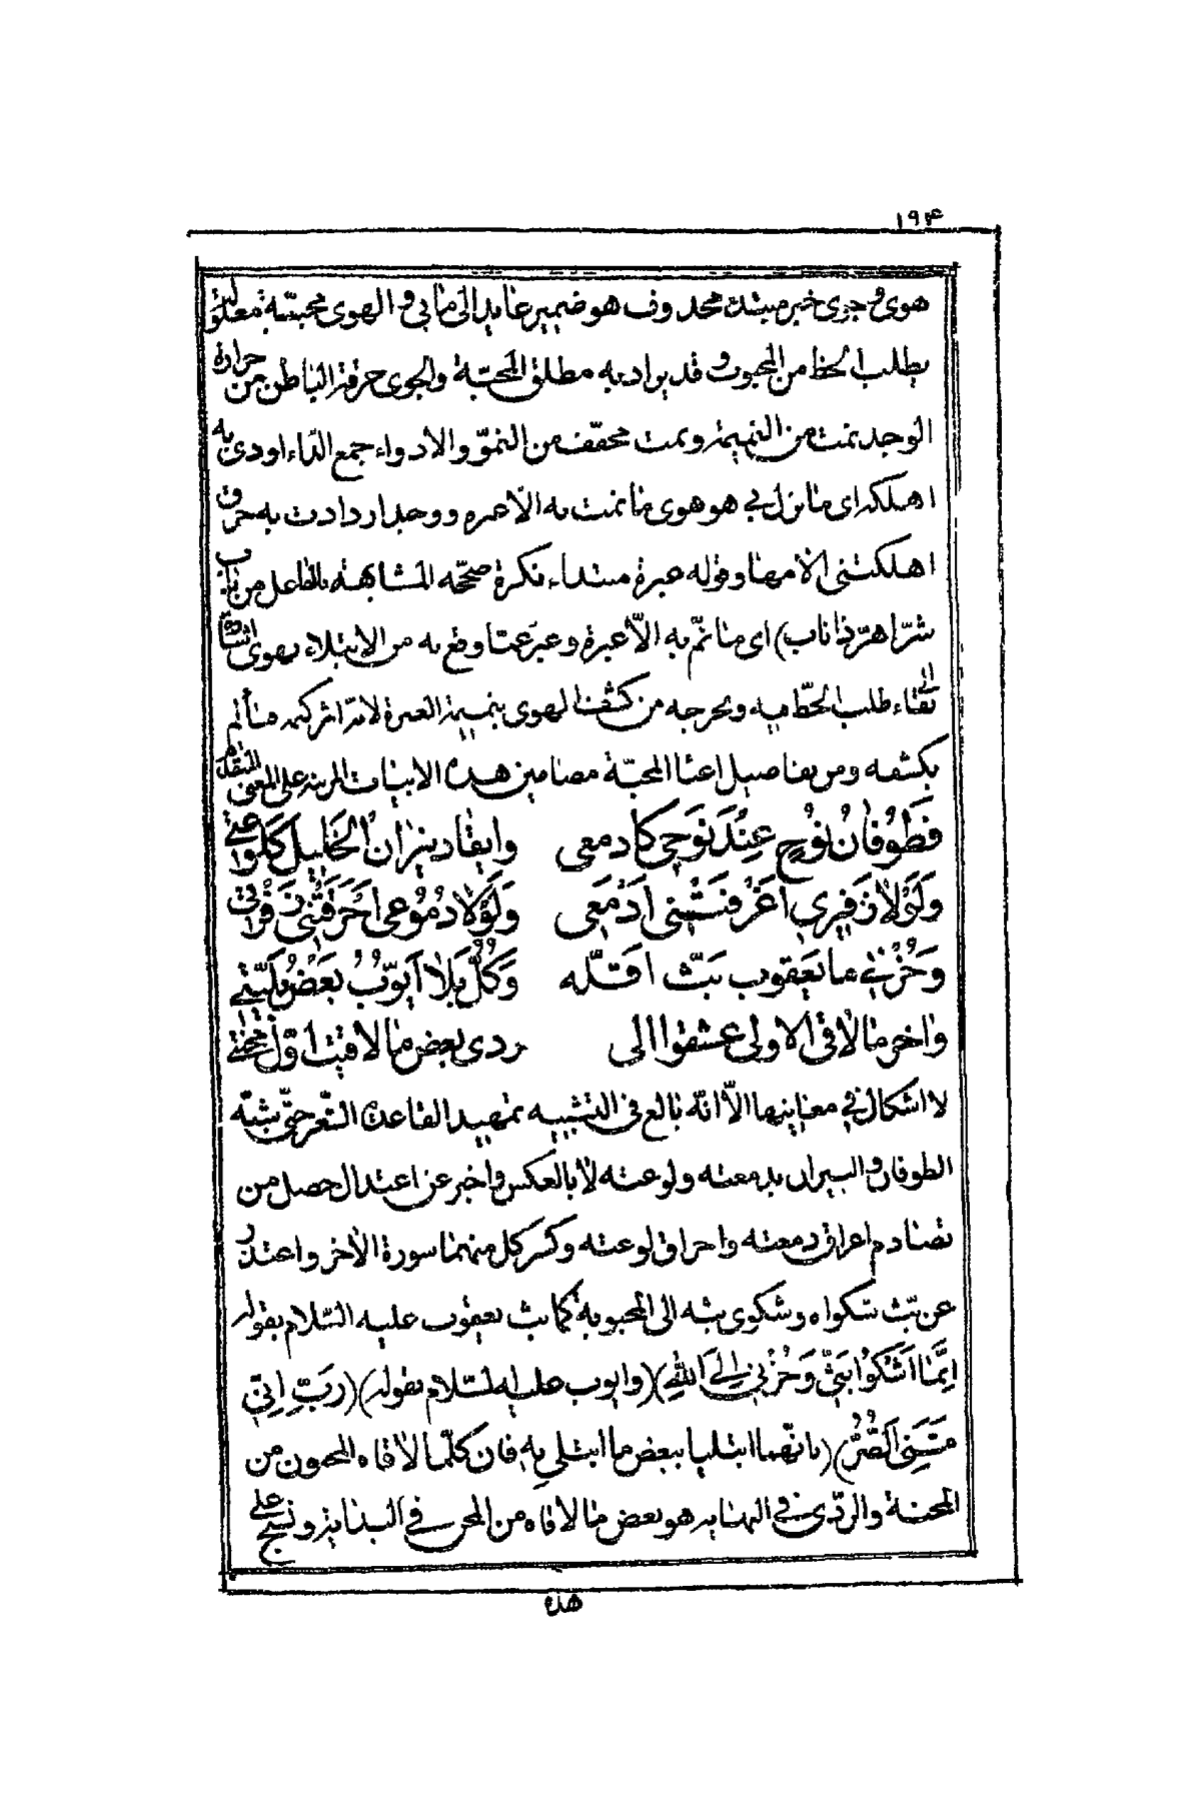 ١٩۴
هوى وجوى خبر مبتدء محذوف هو ضمير عايد الى ما بي و الهوى محبّة معلولة
بطلب الحظ من المحبوب وقد يراد به مطلق المحبّة والجوى حرقة الباطن من حرارة
الوجد نمت من النميمة ونمت مخفّف من النموّ والادواء جمع الدّاء اودى به
اهلكه اى ما نزل بي هو هوى ما نمت به الّا عبره ووجد ازدادت به حرق
اهلكتنى الامها وقوله عبرة مبتداء نكرة صحّحه المشابهة بالفاعل من باب
شرّ اهرّ ذا ناب) اى ما نمّ به الّا عبرة وعبّر عمّا وقع به من الابتلاء بهوى
بقاء طلب الحظ فيه ويحرجه من كشف الهوى بنميمة العبرة لانّه اثر كبد متألم
بكشفه ومن تفاصيل اعنا المحبّة مضامين هذه الابيات المرتبة على المعنى المتقدم
فَطُوفَانُ نُوْحٍ عِنْدَ نَوْحِي كادمعى وايقاد نيران الخَليلِ كَلَوْعَتي
وَلَوْلا زَفِيري اَغْرَقَتْنى اَدْمُعى وَلَوْلا دُمُوعى اَحْرَقَتْنى زَفْرَتي
وَحُزْني ما يَعقوب بَثَّ اَقَلّه وَكُلُّ بَلا اَيّوبُ بَعْضُ بَلِيَّتي
واخر ما لاقى الاولى عشقوا الى ردى بعض ما لاقيت اوّل محنتي
لا اشكال في معاينها الّا انّه بالغ فى التشبيه تمهيد القاعدة الشّعر حتّى شبّه
الطوفان والنيران بدمعته ولوعته لا بالعكس واخبر عن اعتدال حصل من
تصادم اغراق دمعته واحراق لوعته وكسر كل منهما سورة الاخر واعتذر
عن بثّ شكواه وشكوى بثه الى المحبوبة كما بث يعقوب عليه السّلام بقوله
اِنَّما اَشْكُوا بَثّي وَحُزْني اِلَى اللّٰهِ)(وايوب عليه السّلام بقوله)(رَبِّ اِنّي
مَسَّنِىَ الضُّرُّ)(بانّهما ابتليا ببعض ما ابتلي به فان كلّما لاقاه المحبون من
المحنة والردّى في النهاية هو بعض ما لاقاه من المحن في البداية ونسج على
هذا